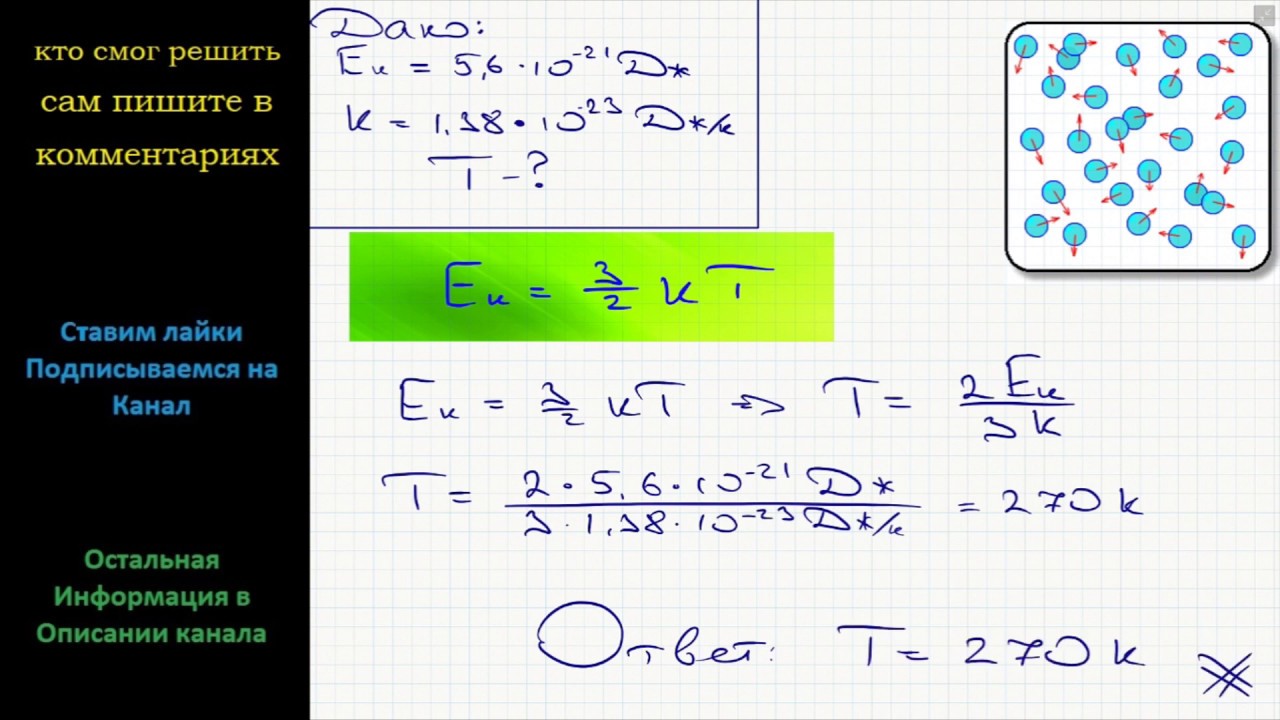 кто смог решить
сам пишите в
комментариях
Ставим лайки
Подписываемся на
Канал
Остальная
Информация в
Описании канала
Дано:
Eк = 5,6 · 10⁻²¹ Дж
k = 1,38 · 10⁻²³ Дж/к
T - ?
Eк = 3/2 k T
Eк = 3/2 kT => T = 2Eк / 3k
T = 2 · 5,6 · 10⁻²¹ Дж / 3 · 1,38 · 10⁻²³ Дж/к = 270 к
Ответ: T = 270 к